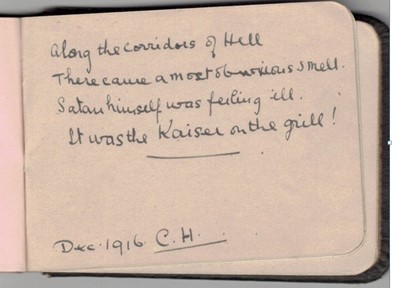 Along the corridors of Hell
There came a most obnoxious smell.
Satan himself was feeling ill.
It was the Kaiser on the grill!
Dec. 1916. C.H.